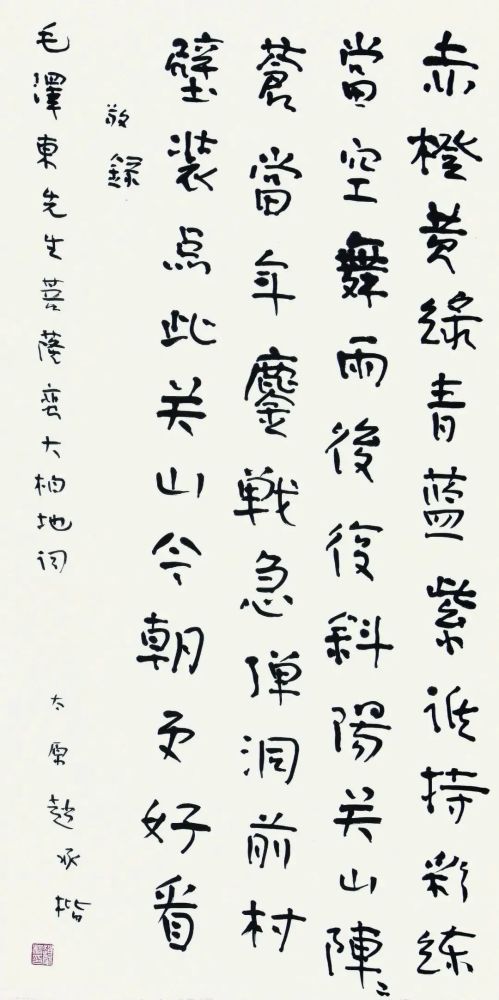 赤橙黄綠青蓝紫誰持彩練
當空舞雨後復斜陽关山陣〻
蒼當年鏖戦急弹洞前村
壁裝点此关山今朝更好看
敬錄
毛澤東先生菩薩蛮大柏地词
太原趙承楷